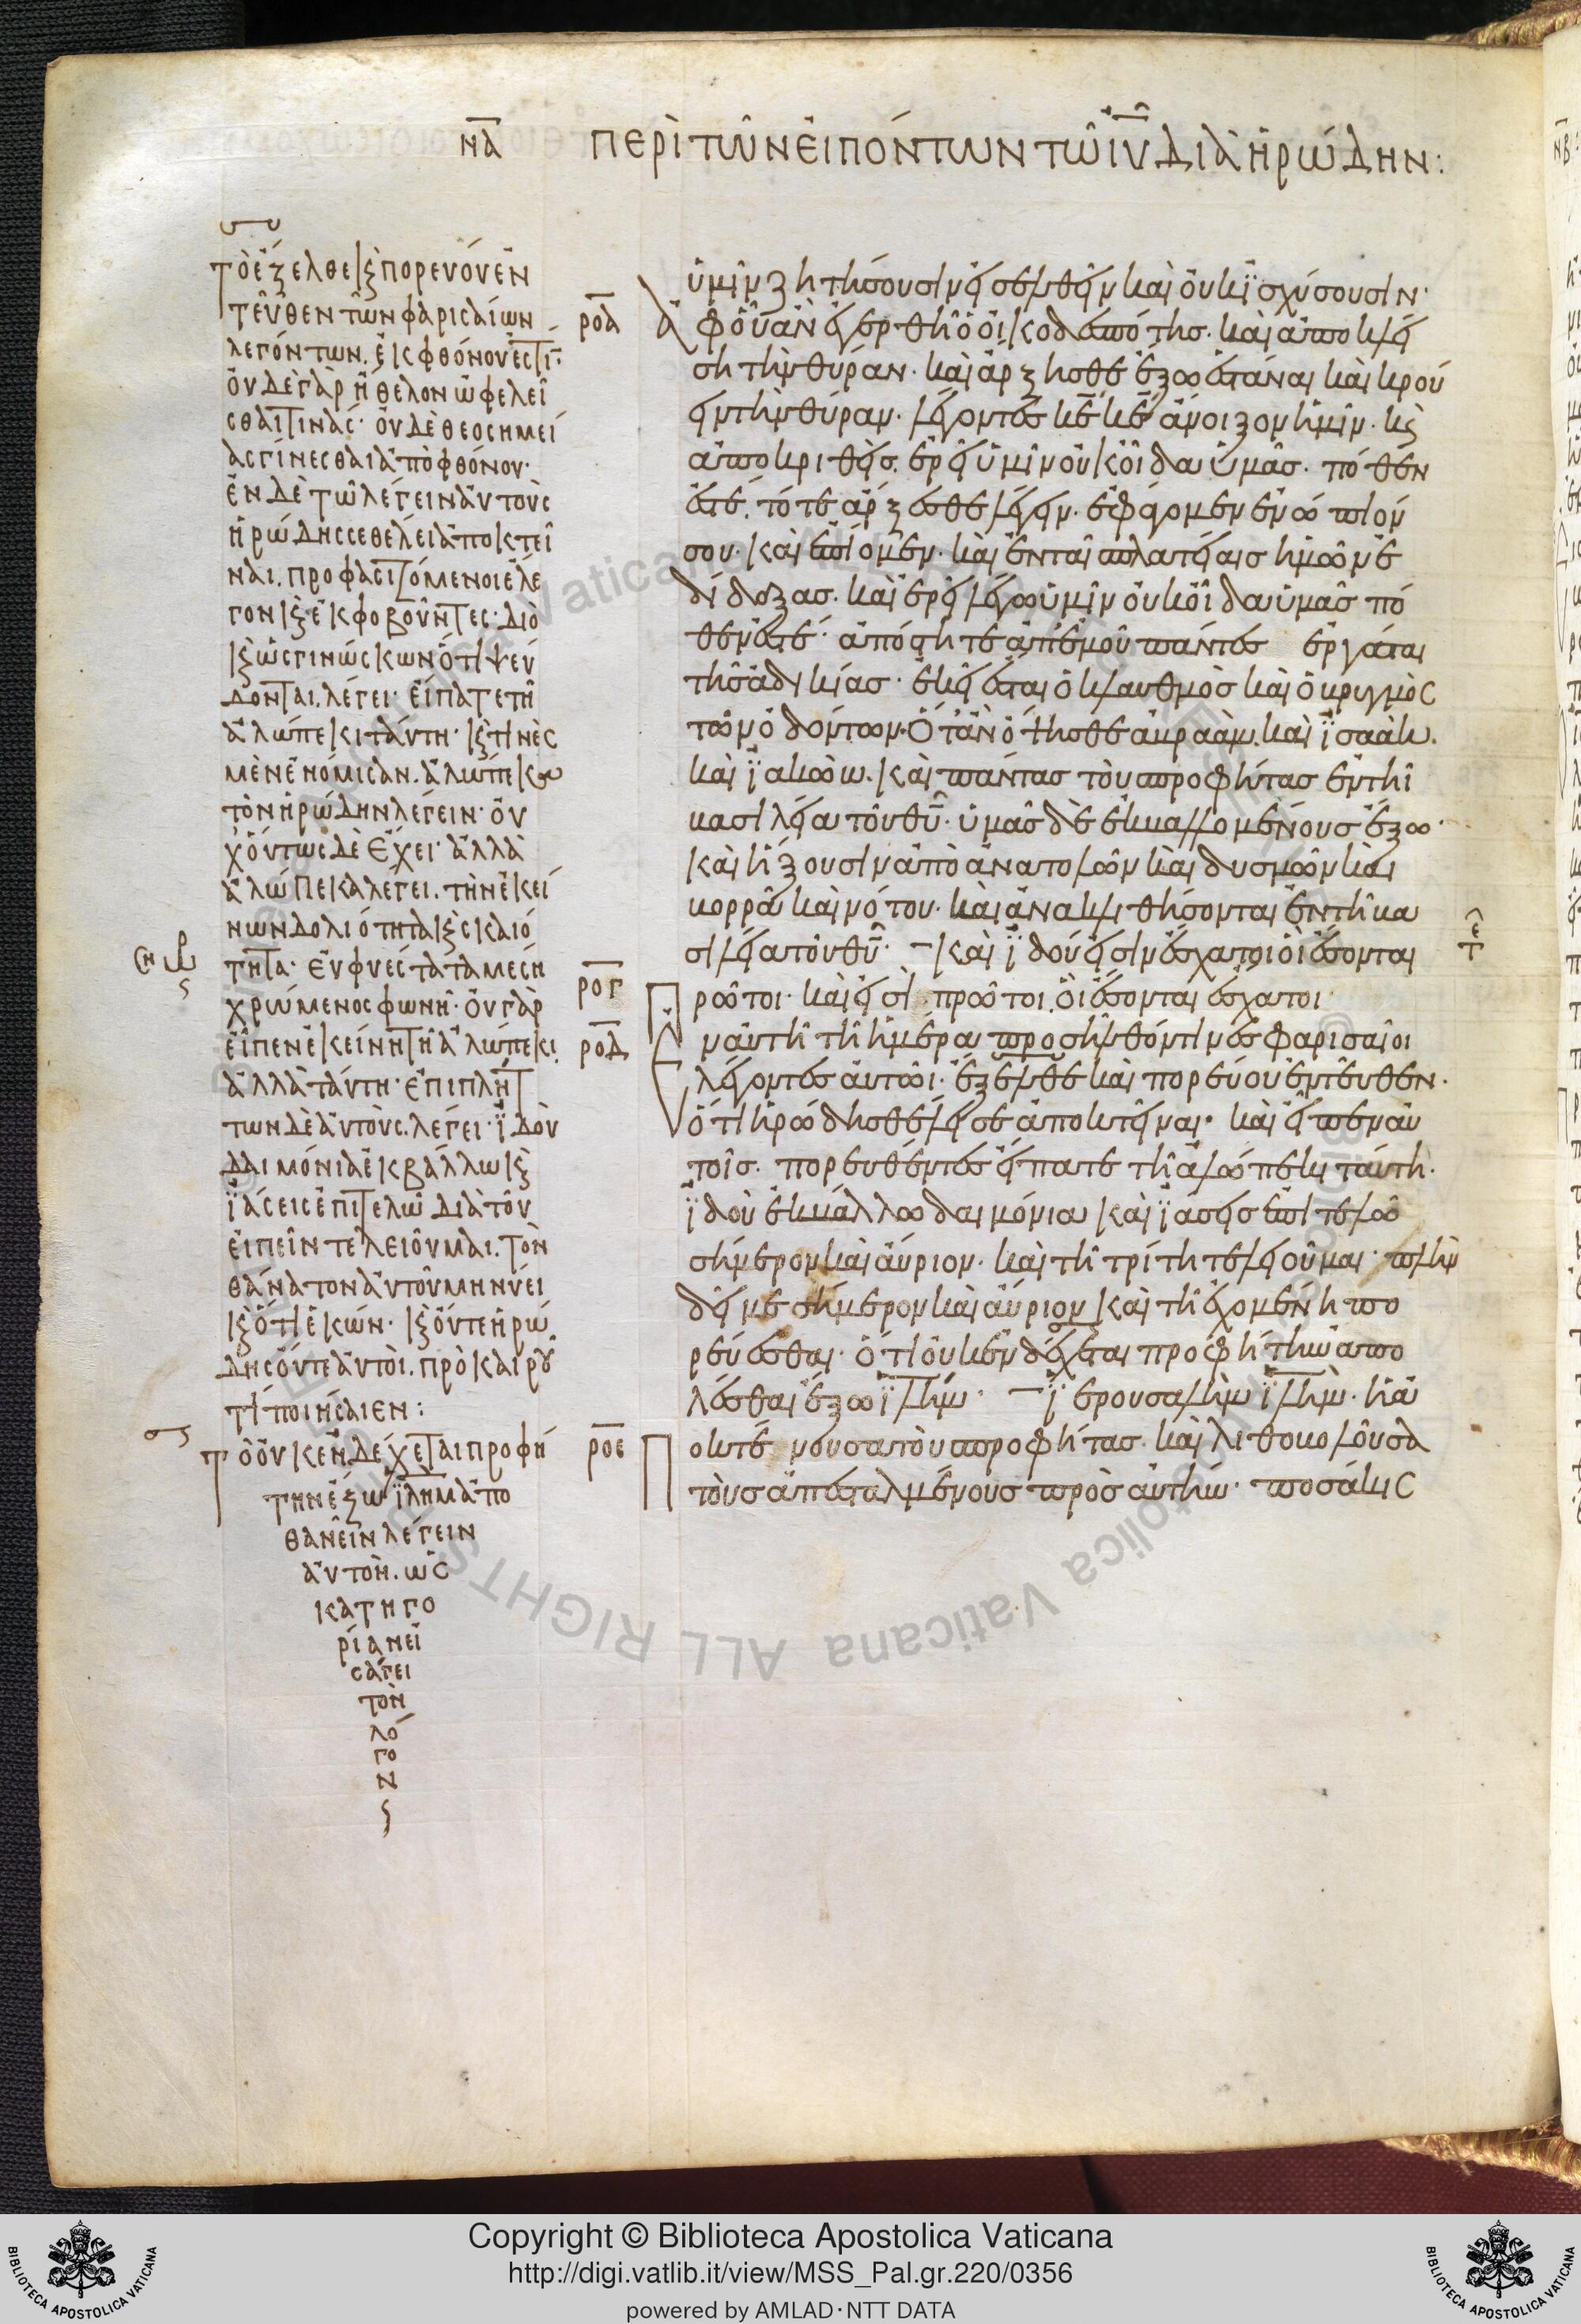 ΝΑ ΠΕΡῚ ΤΩ͂Ν ΕἸΠΌΝΤΩΝ ΤΩ͂ ΙΥ ΔΙᾺ ἩΡΏΔΗΝ:
Τὸ ἔξελθε καὶ πορεύου ἐν
τεῦθεν τῶν φαρισαίων
λεγόντων. ἐκ φθόνου ἐστι·
οὐδὲ γὰρ ἤθελον ὠφελεῖ
σθαι τινάς· οὐδὲ θεοσημεί
ας γίνεσθαι ἀπὸ φθόνου·
ἐν δὲ τῶ λέγειν αὐτοὺς
ἡρώδης σε θέλει ἀποκτεῖ
ναι. προφασιζόμενοι ἔλε
γον καὶ ἐκφοβοῦντες· διὸ
καὶ ὡς γινώσκων ὅτι ψεύ
δονται. λέγει· εἴπατε τῆ
ἀλώπεκι ταύτη· καὶ τινὲς
μὲν ἐνόμισαν. ἀλώπεκα
τὸν ἡρώδην λέγειν· οὐ
χ οὕτως δὲ ἔχει· ἀλλὰ
ἀλώπεκα λέγει. τὴν ἐκεί
νων δολιότητα καὶ σκαιό
τητα· εὐφυέστατα μέση
χρώμενος φωνῆ· οὐ γὰρ
εἶπεν ἐκείνη τῆ ἀλώπεκι.
ἀλλὰ ταύτη· ἐπιπλήτ
των δὲ αὐτοὺς. λέγει· ἰδοὺ
δαιμόνια ἐκβάλλω καὶ
ἰάσεις ἐπιτελῶ διὰ τοῦ
εἰπεῖν τελειοῦμαι. τὸν
θάνατον αὐτοῦ μηνύει
καὶ ὅτι ἑκών· καὶ οὔτε ἡρώ
δης οὔτε αὐτοὶ. πρὸ καιροῦ
τί ποιήσαιεν:
Τὸ οὐκ ἐνδέχεται προφή
την ἔξω ιλημ ἀπο
θανεῖν λέγειν
αὐτον. ὡς
κατηγο
ρίαν εἰ
σάγει
τὸν
λό
γο
ν
ὑμῖν ζητήσουσιν εἰσελθεῖν καὶ οὐκ ἰσχύσουσιν·
ροα ἀφ οὗ ἂν ἐγερθῆ ὁ οἰκοδεσπότης. καὶ ἀποκλεί
ση τὴν θύραν. καὶ ἄρξησθε ἔξω ἑστάναι καὶ κρού
ειν τὴν θύραν. λέγοντες κε κε ἄνοιξον ἡμῖν. καὶ
ἀποκριθεὶς. ἐρεῖ ὑμῖν οὐκ οἶδα ὑμᾶς. πόθεν
ἐστέ. τότε ἄρξεσθε λέγειν. ἐφάγομεν ἐνώπιόν
σου. καὶ ἐπίομεν. καὶ ἐν ταῖς πλατείαις ἡμῶν ἐ
δίδαξας. καὶ ἐρεῖ λέγω ὑμῖν οὐκ οἶδα ὑμᾶς πό
θεν ἐστέ· ἀπόστητε ἀπ ἐμοῦ πάντες ἐργάται
τῆς ἀδικίας· ἐκεῖ ἔσται ὁ κλαυθμὸς καὶ ὁ βρυγμὸς
τῶν ὀδόντων. Ὅταν ὄψησθε ἀβραὰμ. καὶ ἰσαὰκ.
καὶ ἰακώβ. καὶ πάντας τοὺς προφήτας ἐν τῆ
βασιλεία τοῦ θυ· ὑμᾶς δὲ ἐκβαλλομένους ἔξω·
καὶ ἥξουσιν ἀπὸ ἀνατολῶν καὶ δυσμῶν καὶ
βορρᾶ καὶ νότου. καὶ ἀνακλιθήσονται ἐν τῆ βα
σιλεία τοῦ θυ· καὶ ἰδού εἰσιν ἔσχατοι οἳ ἔσονται
ρογ πρῶτοι. καὶ εἰσὶ πρῶτοι. οἳ ἔσονται ἔσχατοι·
ροδ Ἐν αὐτῆ τῆ ἡμέρα προσῆλθόν τινες φαρισαῖοι
λέγοντες αὐτῶ· ἔξελθε καὶ πορεύου ἐντεῦθεν.
ὅτι ἡρώδης θέλει σε ἀποκτεῖναι. καὶ εἶπεν αὐ
τοῖς. πορευθέντες εἴπατε τῆ ἀλώπεκι ταύτη.
ἰδοὺ ἐκβάλλω δαιμόνια καὶ ἰάσεις ἐπιτελῶ
σήμερον καὶ αὔριον. καὶ τῆ τρίτη τελειοῦμαι· πλὴν
δεῖ με σήμερον καὶ αὔριον καὶ τῆ ἐχομένη πο
ρεύεσθαι. ὅτι οὐκ ἐνδέχεται προφήτην ἀπο
λέσθαι ἔξω ιλημ. ἱερουσαλὴμ ιλημ. ἡ ἀ
ροε ποκτένουσα τοὺς προφήτας. καὶ λιθοβολοῦσα
τοὺς ἀπεσταλμένους πρὸς αὐτήν. ποσάκις
Copyright © Biblioteca Apostolica Vaticana
http://digi.vatlib.it/view/MSS_Pal.gr.220/0356
powered by AMLAD·NTT DATA
BIBLIOTECA APOSTOLICA VATICANA
BIBLIOTECA APOSTOLICA VATICANA